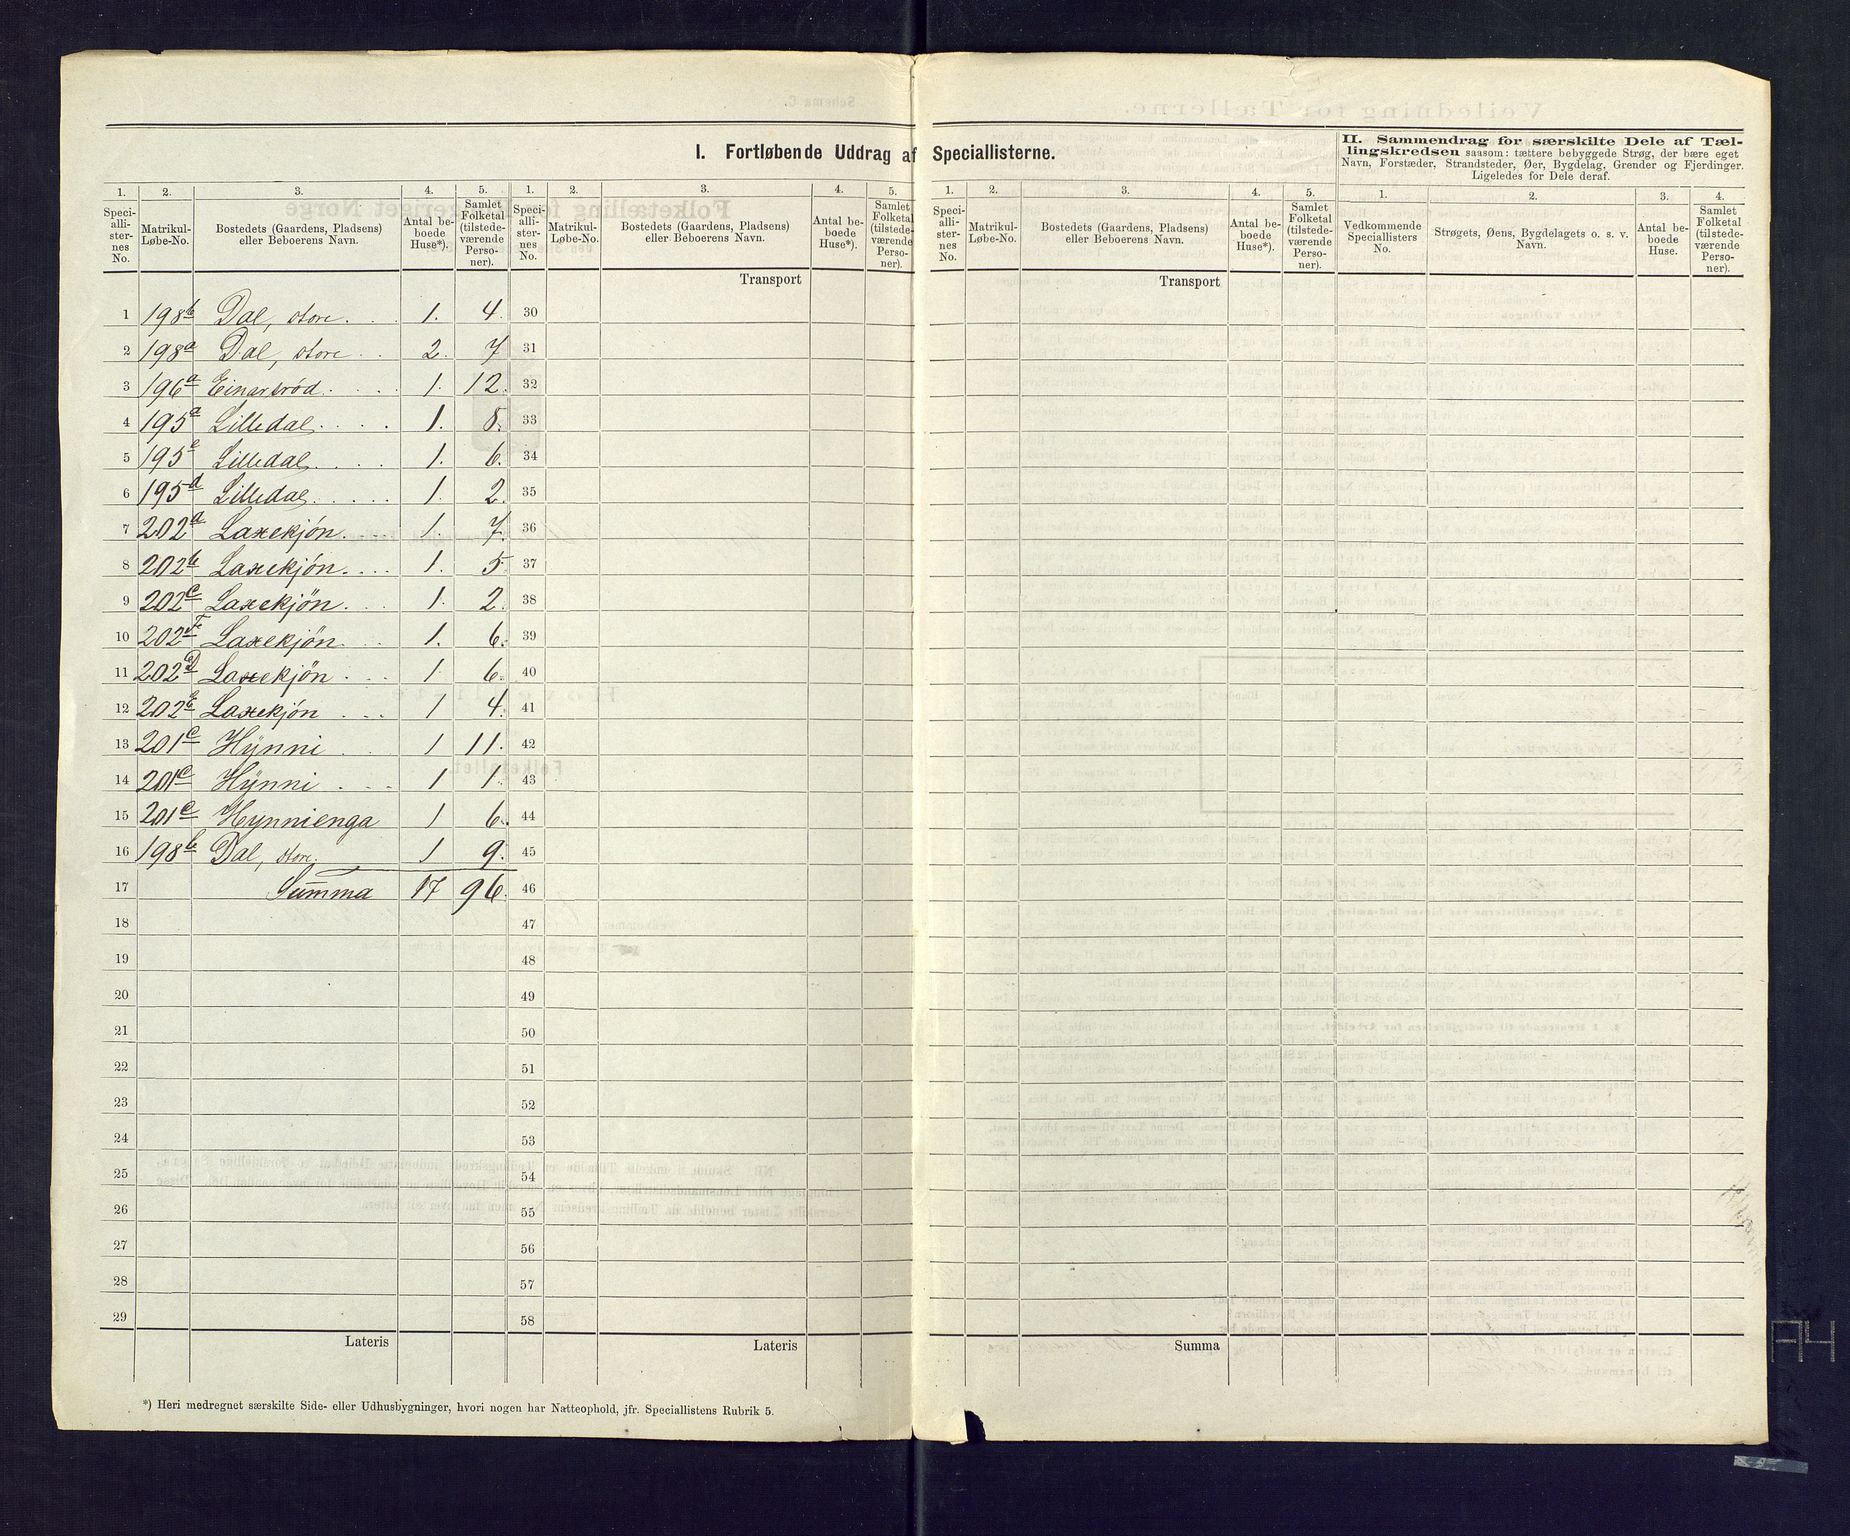 I. Fortløbende Uddrag af Speciallisterne.
II. Sammendrag for særskilte Dele af Tæl-
lingskredsen saasom: tættere bebyggede Strøg, der bære eget
Navn, Forstæder, Strandsteder, Øer, Bygdelag, Grender og Fjerdinger.
Ligeledes for Dele deraf.
1. 2. 3. 4. 5. 1. 2. 3. 4. 5. 1. 2. 3. 4. 5. 1. 2. 3. 4.
Speci-
alli-
ster-
nes
No.
Matrikul-
Løbe-No.
Bostedets (Gaardens, Pladsens)
eller Beboerens Navn.
Antal be-
boede
Huse*).
Samlet
Folketal
(tilstede-
værende
Perso-
ner).
Speci-
alli-
ster-
nes
No.
Matrikul-
Løbe-No.
Bostedets (Gaardens, Pladsens)
eller Beboerens Navn.
Antal be-
boede
Huse*).
Samlet
Folketal
(tilstede-
værende
Perso-
ner).
Speci-
alli-
ster-
nes
No.
Matrikul-
Løbe-No.
Bostedets (Gaardens, Pladsens)
eller Beboerens Navn.
Antal be-
boede
Huse*).
Samlet
Folketal
(tilstede-
værende
Perso-
ner).
Vedkommende
Speciallisters
No.
Strøgets, Øens, Bygdelagets o. s. v.
Navn.
Antal be-
boede
Huse.
Samlet
Folketal
(tilstede-
værende
Perso-
ner).
Transport Transport
1 198b Dal, store . . . 1. 4. 30
2 198a Dal, store . . 2. 7 31
3 196a Einarsrød . . . . 1. 12. 32
4 195a Lilledal . . . . 1. 8. 33
5 195c Lilledal . . . . 1. 6. 34
6 195d Lilledal . . . . . 1. 2. 35
7 202a Laxekjön . . . 1. 7. 36
8 202b Laxekjön . . . . 1. 5. 37
9 202c Laxekjön . . . 1. 2. 38
10 202f Laxekjön . . . 1. 6. 39
11 202d Laxekjön . . . 1. 6. 40
12 202e Laxekjön . . . . 1 4. 41
13 201c Hÿnni . . . 1 11. 42
14 201c Hÿnni . . . . 1 1. 43
15 201c Hynnienga 1 6. 44
16 198b Dal, store. 1 9. 45
17 Summa 17 96. 46
18 47
19 48
20 49
21 50
22 51
23 52
24 53
25 54
26 55
27 56
28 57
29 58
Lateris Lateris Summa
*) Heri medregnet særskilte Side- eller Udhusbygninger, hvori nogen har Natteophold, jfr. Speciallistens Rubrik 5.